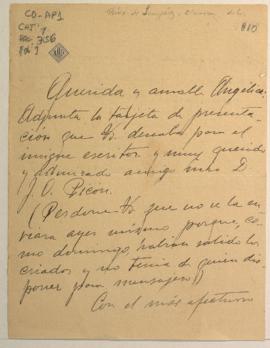 CO-AP1
CAJ: 7
DOC. 756
FOL: 1
810
Querida y amable Angélica:
Adjunta la tarjeta de presenta-
ción que Vd. deseaba para el
insigne escritor y muy querido
y admirado amigo mío D.
J. O. Picón.
(Perdone Vd. que no se la en-
viara ayer mismo porque, co-
mo domingo, habían salido los
criados y no tenía de quien dis-
poner para mensajero!)
Con el más afectuoso